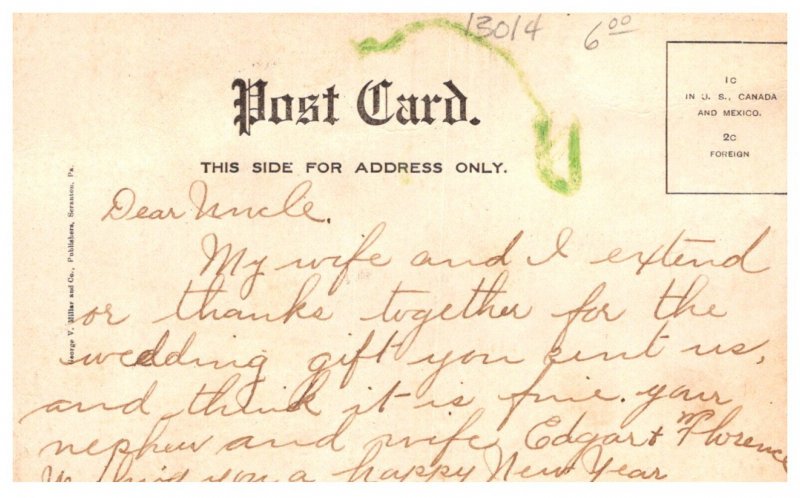 13014 6⁰⁰
Post Card.
THIS SIDE FOR ADDRESS ONLY.
1C
IN U. S., CANADA
AND MEXICO.
2C
FOREIGN
George V. Millar and Co., Publishers, Scranton, Pa.
Dear Uncle.
My wife and I extend
or thanks together for the
wedding gift you sint us,
and think it is fine. your
nephew and wife Edgar & Florence
Wishing you a happy New Year